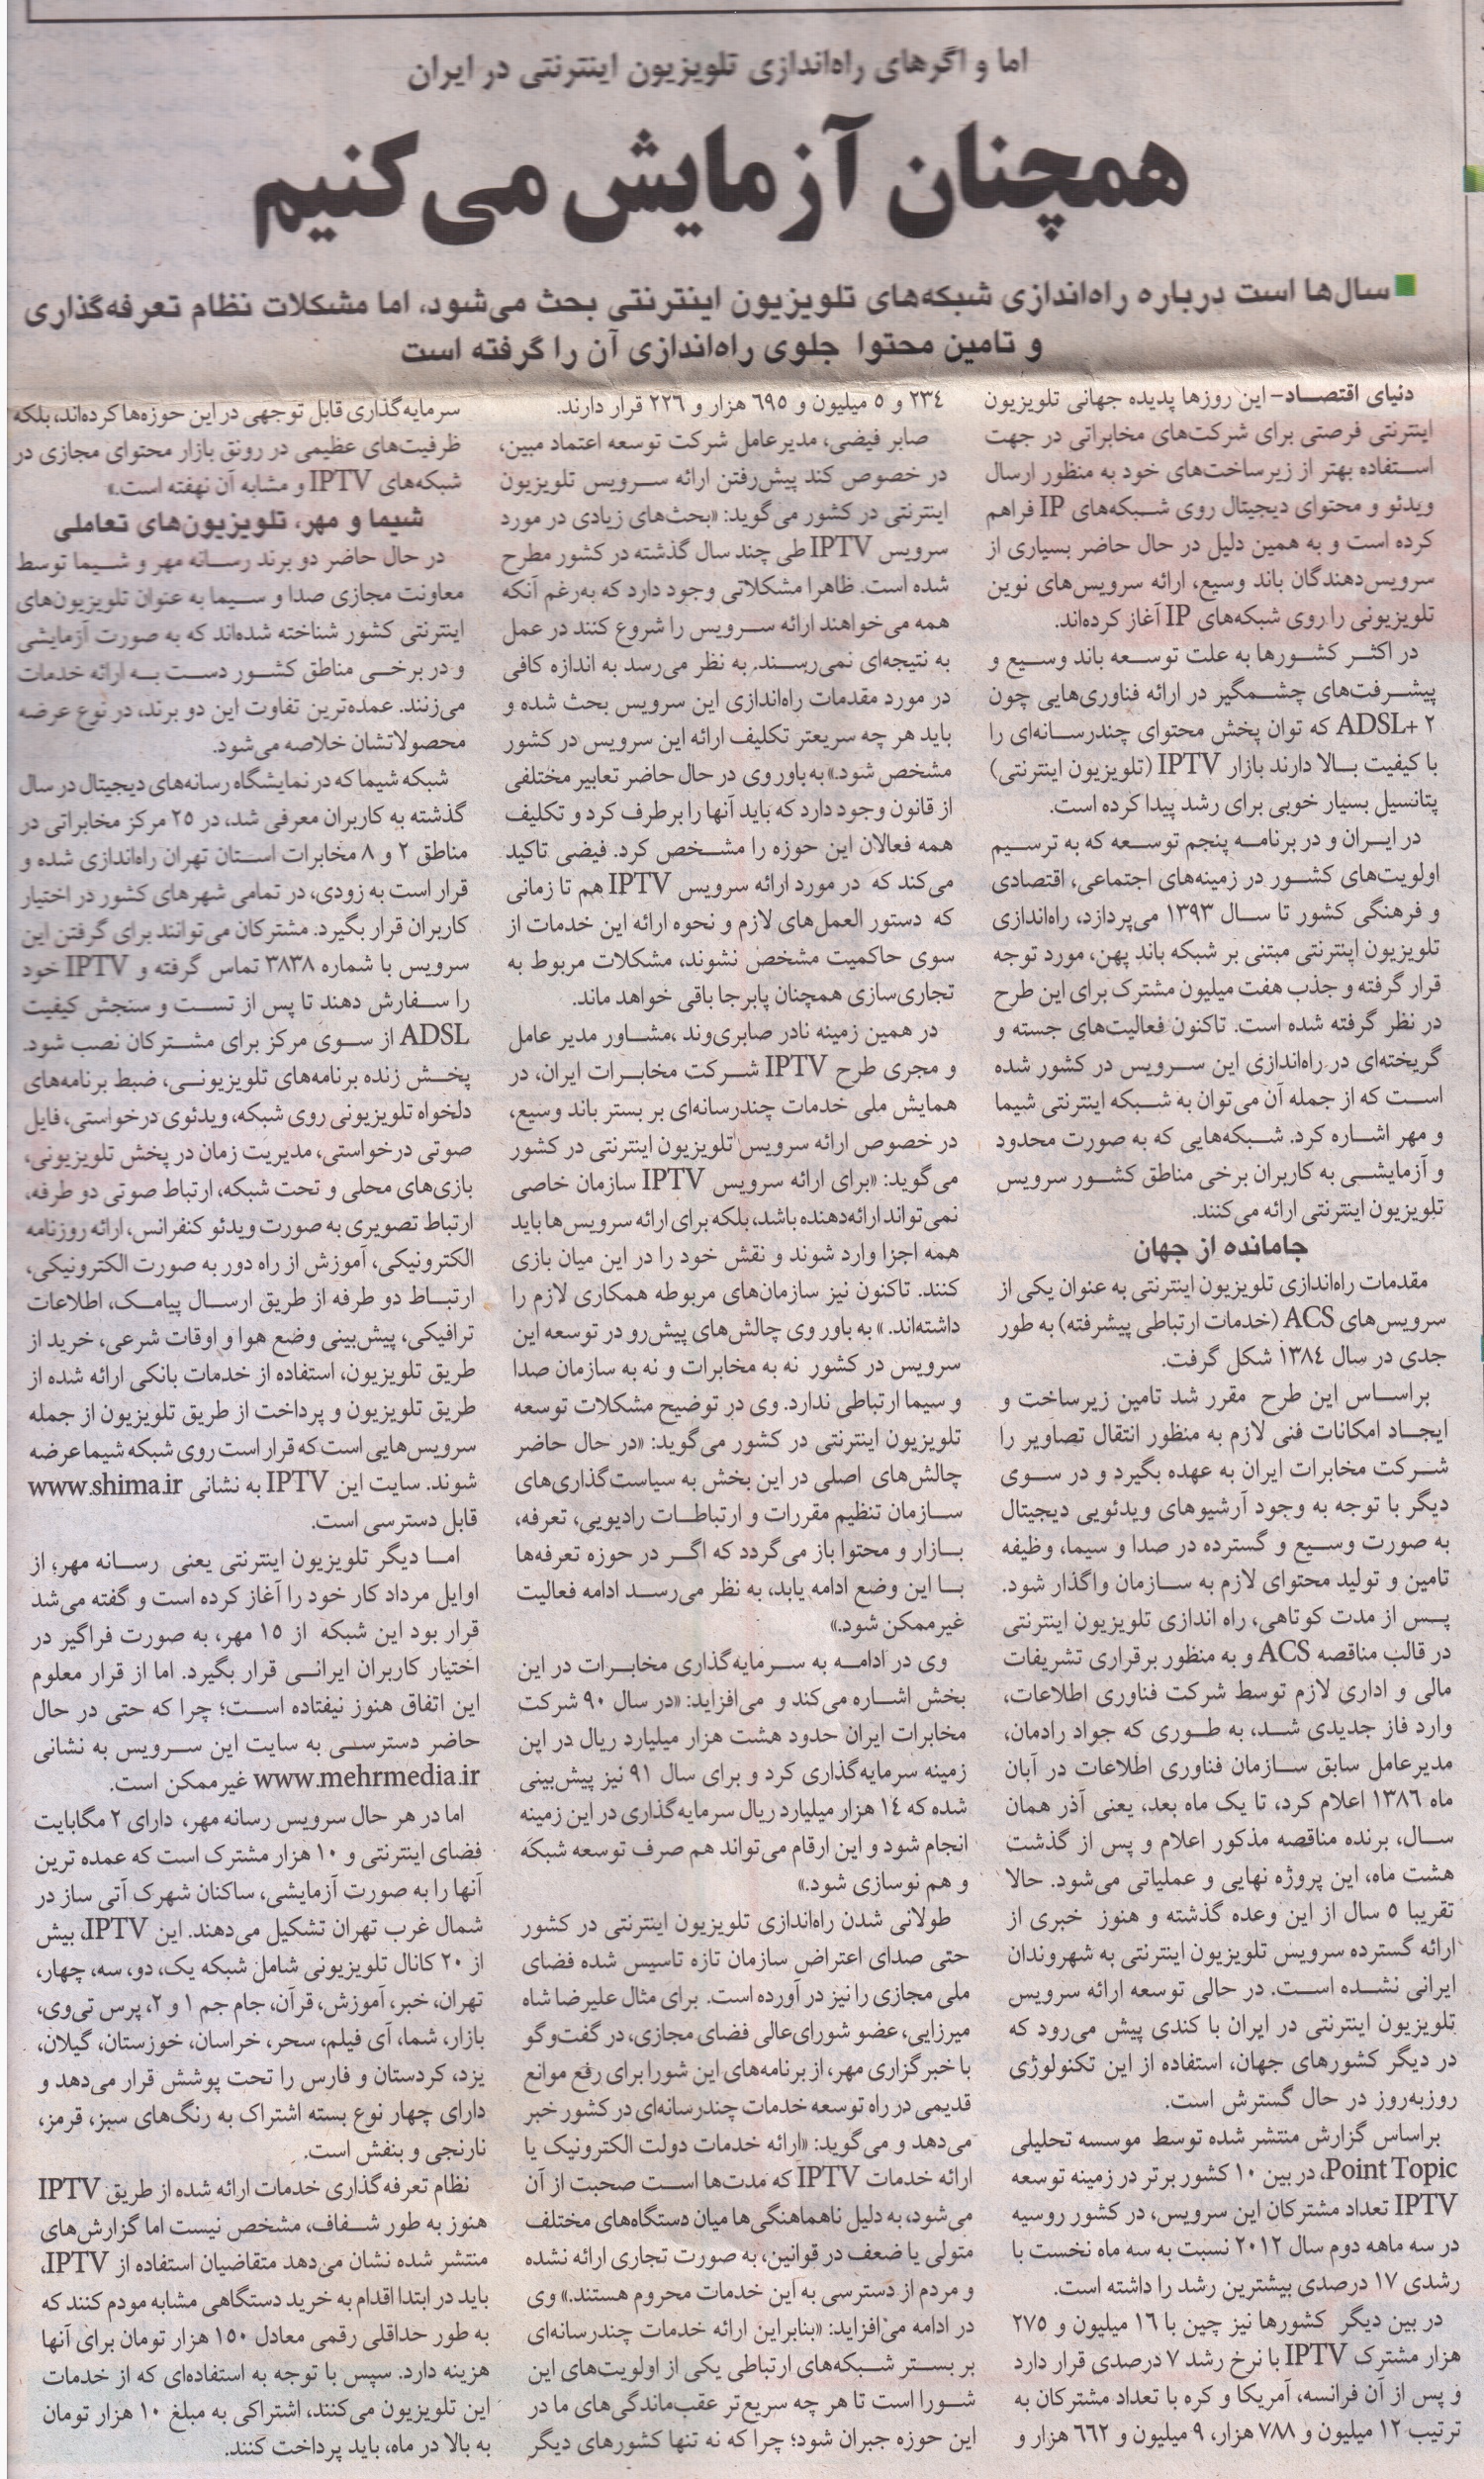 اما و اگرهای راه‌اندازی تلویزیون اینترنتی در ایران
همچنان آزمایش می‌کنیم
سال‌ها است درباره راه‌اندازی شبکه‌های تلویزیون اینترنتی بحث می‌شود، اما مشکلات نظام تعرفه‌گذاری
و تامین محتوا جلوی راه‌اندازی آن را گرفته است
دنیای اقتصاد- این روزها پدیده جهانی تلویزیون
اینترنتی فرصتی برای شرکت‌های مخابراتی در جهت
استفاده بهتر از زیرساخت‌های خود به منظور ارسال
ویدئو و محتوای دیجیتال روی شبکه‌های IP فراهم
کرده است و به همین دلیل در حال حاضر بسیاری از
سرویس‌دهندگان باند وسیع، ارائه سرویس‌های نوین
تلویزیونی را روی شبکه‌های IP آغاز کرده‌اند.
در اکثر کشورها به علت توسعه باند وسیع و
پیشرفت‌های چشمگیر در ارائه فناوری‌هایی چون
ADSL+ ۲ که توان پخش محتوای چندرسانه‌ای را
با کیفیت بالا دارند بازار IPTV (تلویزیون اینترنتی)
پتانسیل بسیار خوبی برای رشد پیدا کرده است.
در ایران و در برنامه پنجم توسعه که به ترسیم
اولویت‌های کشور در زمینه‌های اجتماعی، اقتصادی
و فرهنگی کشور تا سال ۱۳۹۳ می‌پردازد، راه‌اندازی
تلویزیون اینترنتی مبتنی بر شبکه باند پهن، مورد توجه
قرار گرفته و جذب هفت میلیون مشترک برای این طرح
در نظر گرفته شده است. تاکنون فعالیت‌های جسته و
گریخته‌ای در راه‌اندازی این سرویس در کشور شده
است که از جمله آن می‌توان به شبکه اینترنتی شیما
و مهر اشاره کرد. شبکه‌هایی که به صورت محدود
و آزمایشی به کاربران برخی مناطق کشور سرویس
تلویزیون اینترنتی ارائه می‌کنند.
جامانده از جهان
مقدمات راه‌اندازی تلویزیون اینترنتی به عنوان یکی از
سرویس‌های ACS (خدمات ارتباطی پیشرفته) به طور
جدی در سال ۱۳۸٤ شکل گرفت.
براساس این طرح مقرر شد تامین زیرساخت و
ایجاد امکانات فنی لازم به منظور انتقال تصاویر را
شرکت مخابرات ایران به عهده بگیرد و در سوی
دیگر با توجه به وجود آرشیوهای ویدئویی دیجیتال
به صورت وسیع و گسترده در صدا و سیما، وظیفه
تامین و تولید محتوای لازم به سازمان واگذار شود.
پس از مدت کوتاهی، راه اندازی تلویزیون اینترنتی
در قالب مناقصه ACS و به منظور برقراری تشریفات
مالی و اداری لازم توسط شرکت فناوری اطلاعات،
وارد فاز جدیدی شد، به طوری که جواد رادمان،
مدیرعامل سابق سازمان فناوری اطلاعات در آبان
ماه ۱۳۸٦ اعلام کرد، تا یک ماه بعد، یعنی آذر همان
سال، برنده مناقصه مذکور اعلام و پس از گذشت
هشت ماه، این پروژه نهایی و عملیاتی می‌شود. حالا
تقریبا ۵ سال از این وعده گذشته و هنوز خبری از
ارائه گسترده سرویس تلویزیون اینترنتی به شهروندان
ایرانی نشده است. در حالی توسعه ارائه سرویس
تلویزیون اینترنتی در ایران با کندی پیش می‌رود که
در دیگر کشورهای جهان، استفاده از این تکنولوژی
روزبه‌روز در حال گسترش است.
براساس گزارش منتشر شده توسط موسسه تحلیلی
Point Topic، در بین ۱۰ کشور برتر در زمینه توسعه
IPTV تعداد مشترکان این سرویس، در کشور روسیه
در سه ماهه دوم سال ۲۰۱۲ نسبت به سه ماه نخست با
رشدی ۱۷ درصدی بیشترین رشد را داشته است.
در بین دیگر کشورها نیز چین با ۱٦ میلیون و ۲۷۵
هزار مشترک IPTV با نرخ رشد ۷ درصدی قرار دارد
و پس از آن فرانسه، آمریکا و کره با تعداد مشترکان به
ترتیب ۱۲ میلیون و ۷۸۸ هزار، ۹ میلیون و ٦٦۲ هزار و
۲۳٤ و ۵ میلیون و ٦۹۵ هزار و ۲۲٦ قرار دارند.
صابر فیضی، مدیرعامل شرکت توسعه اعتماد مبین،
در خصوص کند پیش‌رفتن ارائه سرویس تلویزیون
اینترنتی در کشور می‌گوید: «بحث‌های زیادی در مورد
سرویس IPTV طی چند سال گذشته در کشور مطرح
شده است. ظاهرا مشکلاتی وجود دارد که به‌رغم آنکه
همه می‌خواهند ارائه سرویس را شروع کنند در عمل
به نتیجه‌ای نمی‌رسند. به نظر می‌رسد به اندازه کافی
در مورد مقدمات راه‌اندازی این سرویس بحث شده و
باید هر چه سریعتر تکلیف ارائه این سرویس در کشور
مشخص شود.» به باور وی در حال حاضر تعابیر مختلفی
از قانون وجود دارد که باید آنها را برطرف کرد و تکلیف
همه فعالان این حوزه را مشخص کرد. فیضی تاکید
می‌کند که در مورد ارائه سرویس IPTV هم تا زمانی
که دستور العمل‌های لازم و نحوه ارائه این خدمات از
سوی حاکمیت مشخص نشوند، مشکلات مربوط به
تجاری‌سازی همچنان پابرجا باقی خواهد ماند.
در همین زمینه نادر صابری‌وند ،مشاور مدیر عامل
و مجری طرح IPTV شرکت مخابرات ایران، در
همایش ملی خدمات چندرسانه‌ای بر بستر باند وسیع،
در خصوص ارائه سرویس تلویزیون اینترنتی در کشور
می‌گوید: «برای ارائه سرویس IPTV سازمان خاصی
نمی‌تواند ارائه‌دهنده باشد، بلکه برای ارائه سرویس‌ها باید
همه اجزا وارد شوند و نقش خود را در این میان بازی
کنند. تاکنون نیز سازمان‌های مربوطه همکاری لازم را
داشته‌اند. » به باور وی چالش‌های پیش‌رو در توسعه این
سرویس در کشور نه به مخابرات و نه به سازمان صدا
و سیما ارتباطی ندارد. وی در توضیح مشکلات توسعه
تلویزیون اینترنتی در کشور می‌گوید: «در حال حاضر
چالش‌های اصلی در این بخش به سیاست‌گذاری‌های
سازمان تنظیم مقررات و ارتباطات رادیویی، تعرفه،
بازار و محتوا باز می‌گردد که اگر در حوزه تعرفه‌ها
با این وضع ادامه یابد، به نظر می‌رسد ادامه فعالیت
غیرممکن شود.»
وی در ادامه به سرمایه‌گذاری مخابرات در این
بخش اشاره می‌کند و می‌افزاید: «در سال ۹۰ شرکت
مخابرات ایران حدود هشت هزار میلیارد ریال در این
زمینه سرمایه‌گذاری کرد و برای سال ۹۱ نیز پیش‌بینی
شده که ۱٤ هزار میلیارد ریال سرمایه‌گذاری در این زمینه
انجام شود و این ارقام می‌تواند هم صرف توسعه شبکه
و هم نوسازی شود.»
طولانی شدن راه‌اندازی تلویزیون اینترنتی در کشور
حتی صدای اعتراض سازمان تازه تاسیس شده فضای
ملی مجازی را نیز در آورده است. برای مثال علیرضا شاه
میرزایی، عضو شورای‌عالی فضای مجازی، در گفت‌وگو
با خبرگزاری مهر، از برنامه‌های این شورا برای رفع موانع
قدیمی در راه توسعه خدمات چندرسانه‌ای در کشور خبر
می‌دهد و می‌گوید: «ارائه خدمات دولت الکترونیک یا
ارائه خدمات IPTV که مدت‌ها است صحبت از آن
می‌شود، به دلیل ناهماهنگی‌ها میان دستگاه‌های مختلف
متولی یا ضعف در قوانین، به صورت تجاری ارائه نشده
و مردم از دسترسی به این خدمات محروم هستند.» وی
در ادامه می‌افزاید: «بنابراین ارائه خدمات چندرسانه‌ای
بر بستر شبکه‌های ارتباطی یکی از اولویت‌های این
شورا است تا هر چه سریع‌تر عقب‌ماندگی‌های ما در
این حوزه جبران شود؛ چرا که نه تنها کشورهای دیگر
سرمایه‌گذاری قابل توجهی در این حوزه‌ها کرده‌اند، بلکه
ظرفیت‌های عظیمی در رونق بازار محتوای مجازی در
شبکه‌های IPTV و مشابه آن نهفته است.»
شیما و مهر، تلویزیون‌های تعاملی
در حال حاضر دو برند رسانه مهر و شیما توسط
معاونت مجازی صدا و سیما به عنوان تلویزیون‌های
اینترنتی کشور شناخته شده‌اند که به صورت آزمایشی
و در برخی مناطق کشور دست به ارائه خدمات
می‌زنند. عمده‌ترین تفاوت این دو برند، در نوع عرضه
محصولاتشان خلاصه می‌شود.
شبکه شیما که در نمایشگاه رسانه‌های دیجیتال در سال
گذشته به کاربران معرفی شد، در ۲۵ مرکز مخابراتی در
مناطق ۲ و ۸ مخابرات استان تهران راه‌اندازی شده و
قرار است به زودی، در تمامی شهرهای کشور در اختیار
کاربران قرار بگیرد. مشترکان می‌توانند برای گرفتن این
سرویس با شماره ۳۸۳۸ تماس گرفته و IPTV خود
را سفارش دهند تا پس از تست و سنجش کیفیت
ADSL از سوی مرکز برای مشترکان نصب شود.
پخش زنده برنامه‌های تلویزیونی، ضبط برنامه‌های
دلخواه تلویزیونی روی شبکه، ویدئوی درخواستی، فایل
صوتی درخواستی، مدیریت زمان در پخش تلویزیونی،
بازی‌های محلی و تحت شبکه، ارتباط صوتی دو طرفه،
ارتباط تصویری به صورت ویدئو کنفرانس، ارائه روزنامه
الکترونیکی، آموزش از راه دور به صورت الکترونیکی،
ارتباط دو طرفه از طریق ارسال پیامک، اطلاعات
ترافیکی، پیش‌بینی وضع هوا و اوقات شرعی، خرید از
طریق تلویزیون، استفاده از خدمات بانکی ارائه شده از
طریق تلویزیون و پرداخت از طریق تلویزیون از جمله
سرویس‌هایی است که قرار است روی شبکه شیما عرضه
شوند. سایت این IPTV به نشانی www.shima.ir
قابل دسترسی است.
اما دیگر تلویزیون اینترنتی یعنی رسانه مهر، از
اوایل مرداد کار خود را آغاز کرده است و گفته می‌شد
قرار بود این شبکه از ۱۵ مهر، به صورت فراگیر در
اختیار کاربران ایرانی قرار بگیرد. اما از قرار معلوم
این اتفاق هنوز نیفتاده است؛ چرا که حتی در حال
حاضر دسترسی به سایت این سرویس به نشانی
www.mehrmedia.ir غیرممکن است.
اما در هر حال سرویس رسانه مهر، دارای ۲ مگابایت
فضای اینترنتی و ۱۰ هزار مشترک است که عمده ترین
آنها را به صورت آزمایشی، ساکنان شهرک آتی ساز در
شمال غرب تهران تشکیل می‌دهند. این IPTV، بیش
از ۲۰ کانال تلویزیونی شامل شبکه یک، دو، سه، چهار،
تهران، خبر، آموزش، قرآن، جام جم ۱ و ۲، پرس تی‌وی،
بازار، شما، آی فیلم، سحر، خراسان، خوزستان، گیلان،
یزد، کردستان و فارس را تحت پوشش قرار می‌دهد و
دارای چهار نوع بسته اشتراک به رنگ‌های سبز، قرمز،
نارنجی و بنفش است.
نظام تعرفه‌گذاری خدمات ارائه شده از طریق IPTV
هنوز به طور شفاف، مشخص نیست اما گزارش‌های
منتشر شده نشان می‌دهد متقاضیان استفاده از IPTV،
باید در ابتدا اقدام به خرید دستگاهی مشابه مودم کنند که
به طور حداقلی رقمی معادل ۱۵۰ هزار تومان برای آنها
هزینه دارد. سپس با توجه به استفاده‌ای که از خدمات
این تلویزیون می‌کنند، اشتراکی به مبلغ ۱۰ هزار تومان
به بالا در ماه، باید پرداخت کنند.